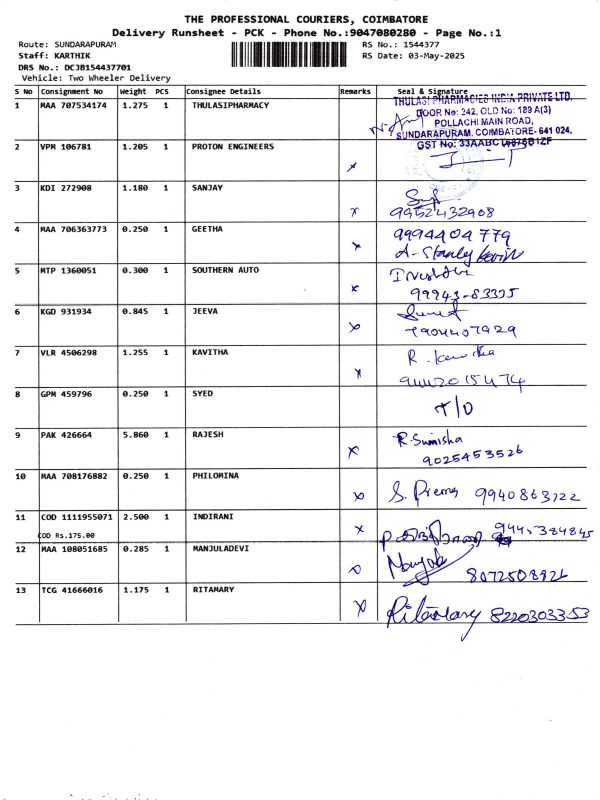 THE PROFESSIONAL COURIERS, COIMBATORE
Delivery Runsheet - PCK - Phone No.:9047080280 - Page No.:1
Route: SUNDARAPURAM RS No.: 1544377
Staff: KARTHIK RS Date: 03-May-2025
DRS No.: DCJB154437701
Vehicle: Two Wheeler Delivery
S No Consignment No Weight PCS Consignee Details Remarks Seal & Signature
1 MAA 707534174 1.275 1 THULASIPHARMACY
THULASI PHARMACIES INDIA PRIVATE LTD.
DOOR No: 242, OLD No: 189 A(3)
POLLACHI MAIN ROAD,
SUNDARAPURAM. COIMBATORE- 641 024.
GST No:
2 VPM 106781 1.205 1 PROTON ENGINEERS x
3 KDI 272908 1.180 1 SANJAY x
9952432908
4 MAA 706363773 0.250 1 GEETHA x 9994404779
A. Stanley Kevin
5 MTP 1360051 0.300 1 SOUTHERN AUTO x
6 KGD 931934 0.845 1 JEEVA x
7904407929
7 VLR 4506298 1.255 1 KAVITHA x R. Kavitha
8 GPM 459796 0.250 1 SYED T/D
9 PAK 426664 5.860 1 RAJESH x R. Sumisha
9025453526
10 MAA 708176882 0.250 1 PHILOMINA x S. Prema 9940863122
11 COD 1111955071 2.500 1 INDIRANI x 9445384845
COD Rs.175.00
12 MAA 108051685 0.285 1 MANJULADEVI x
8072508926
13 TCG 41666016 1.175 1 RITAMARY x Ritamary 8220303353